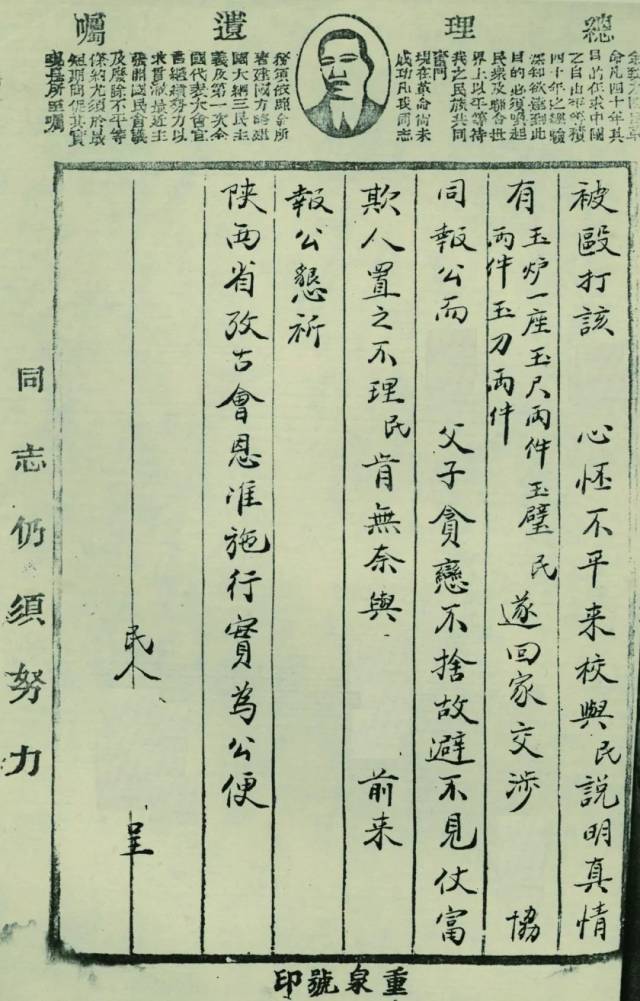 總理遺囑
余致力國民革
命凡四十年其
目的在求中國
之自由平等積
四十年之經驗
深知欲達到此
目的必須喚起
民眾及聯合世
界上以平等待
我之民族共同
奮鬥
現在革命尚未
成功凡我同志
務須依照余所
著建國方略建
國大綱三民主
義及第一次全
國代表大會宣
言繼續努力以
求貫澈最近主
張開國民會議
及廢除不平等
條約尤須於最
短期間促其實
現是所至囑
被毆打該 心怌不平来校與民説明真情
有玉炉一座玉尺兩件玉璧兩件玉刀兩件民遂回家交涉 協
同報公而 父子貪戀不捨故避不見仗富
欺人置之不理民肯無奈與 前来
報公懇祈
陕西省攷古會恩准施行實為公便
民人 呈
同志仍須努力
重泉號印